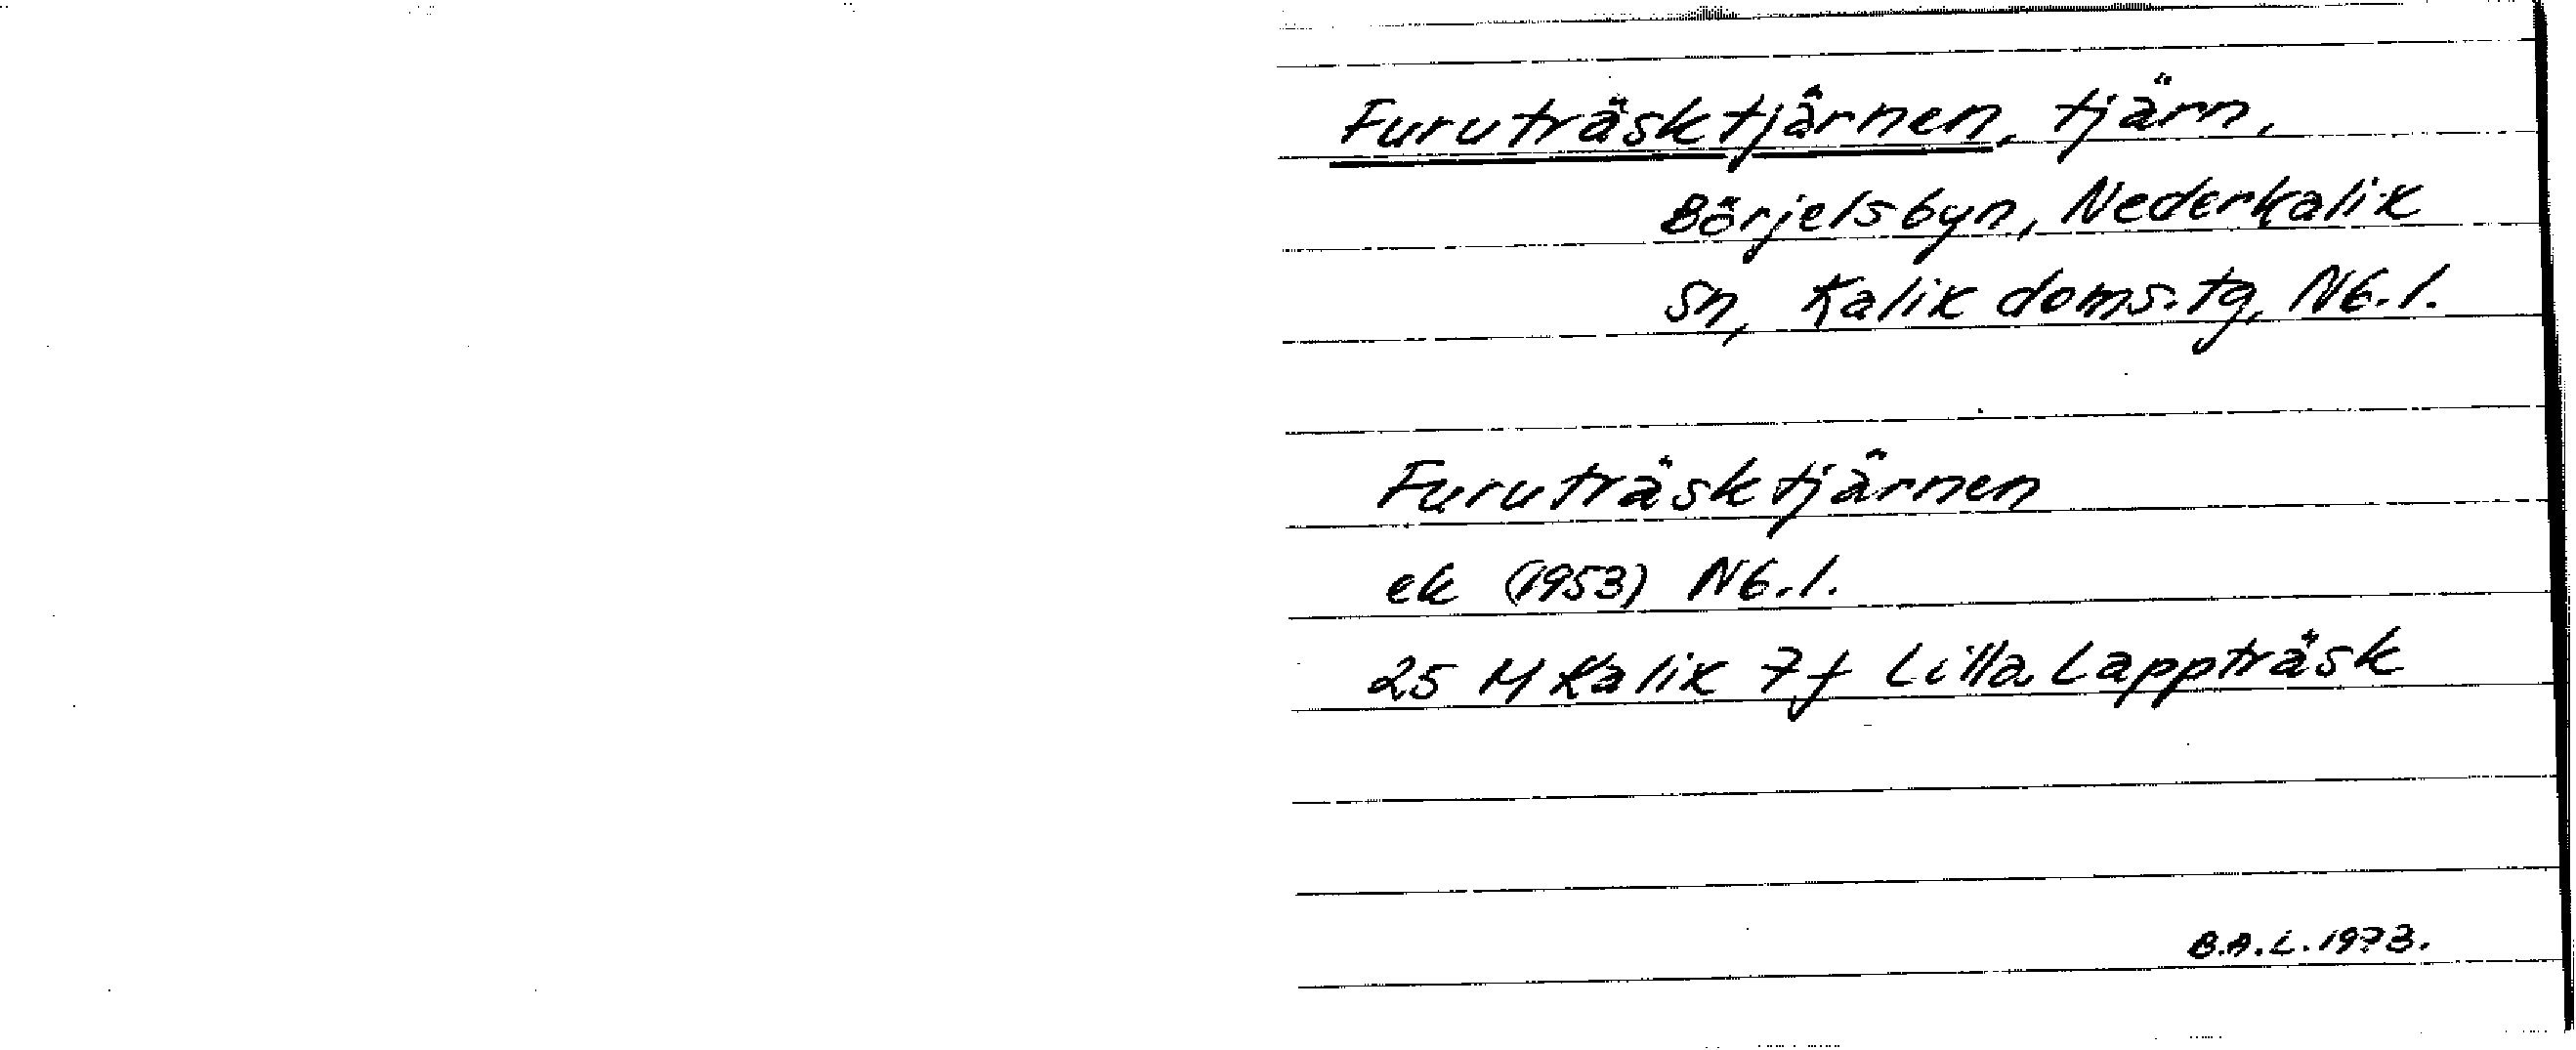 Furuträsktjärnen, tjärn,
Börjelsbyn, Nederkalix
sn, Kalix doms.tg, Nb.l.
Furuträsktjärnen
ek (1953) Nb.l.
25 M Kalix 7f Lilla Lappträsk
B.A.L. 1973.